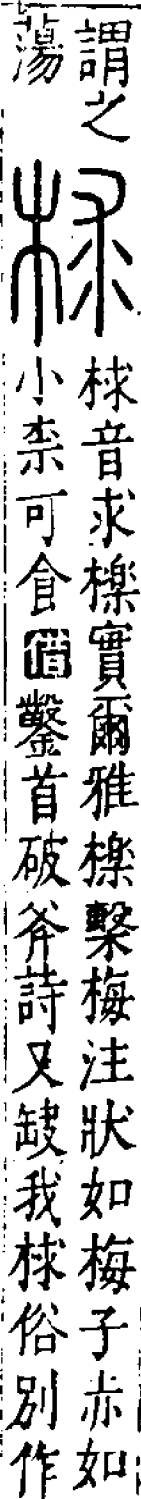 謂之
蕩
梂
梂音求櫟實爾雅櫟檕梅注狀如梅子赤如
小柰可食借鑿首破斧詩又缺我梂俗别作